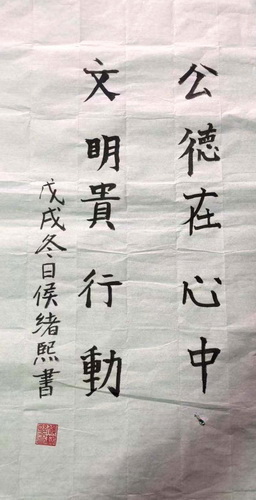 公德在心中
文明貴行動
戊戌冬日侯緒熙書